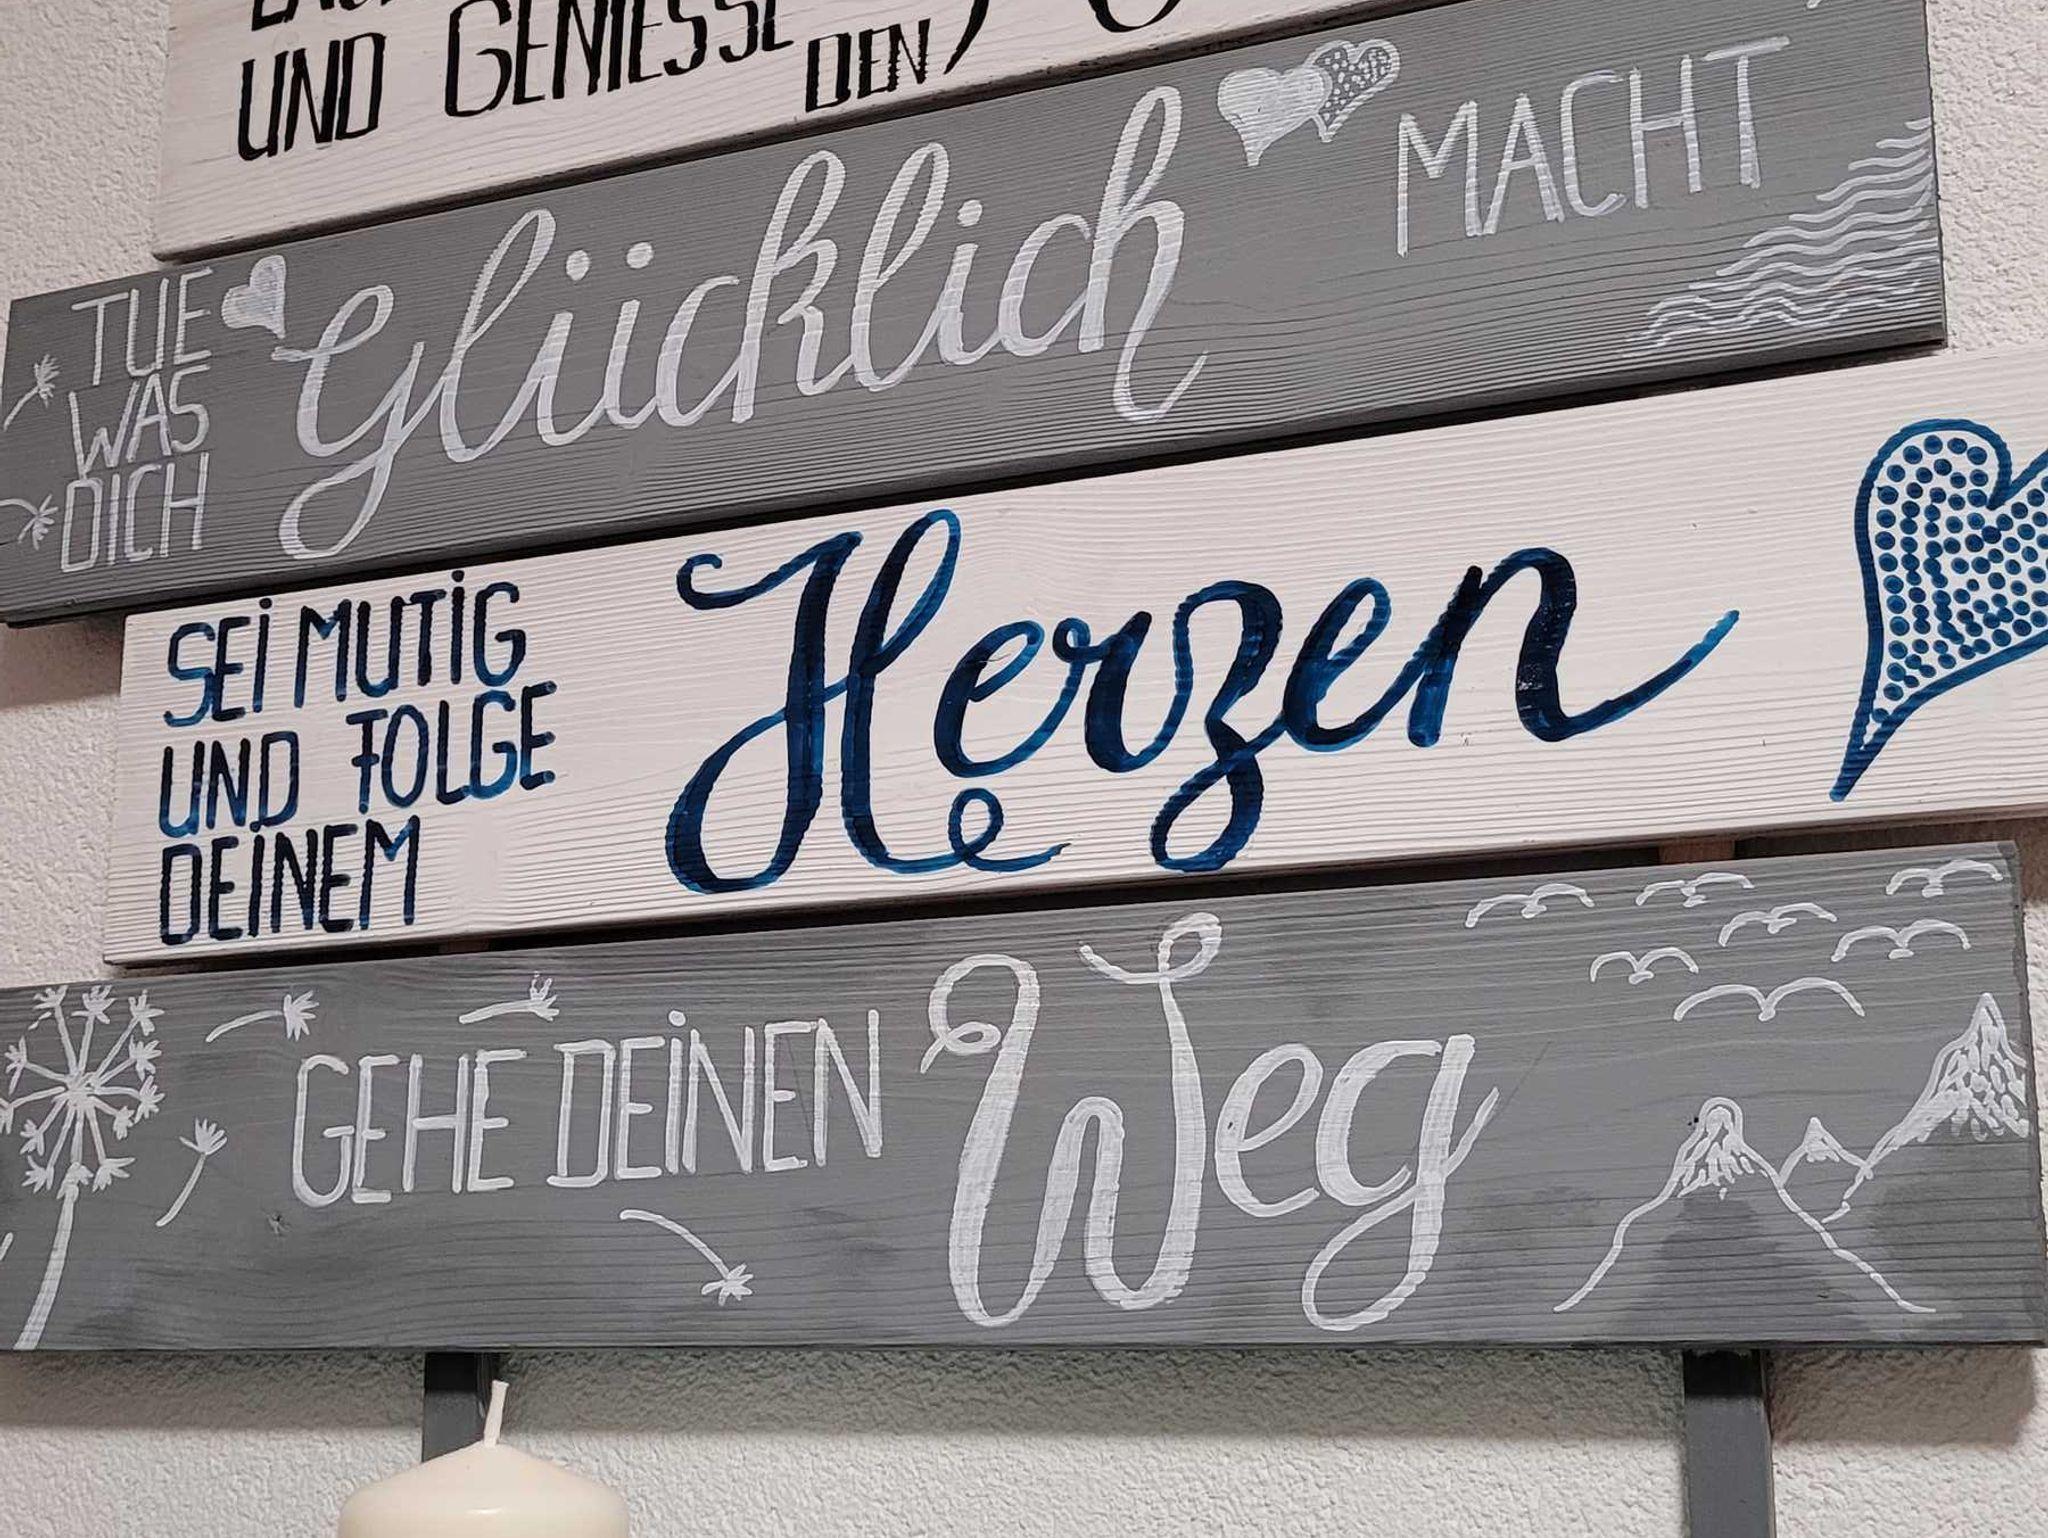 UND GENIESSE
DEN
TUE
WAS
DICH
glücklich
MACHT
SEI MUTIG
UND FOLGE
DEINEM
Herzen
GEHE DEINEN Weg